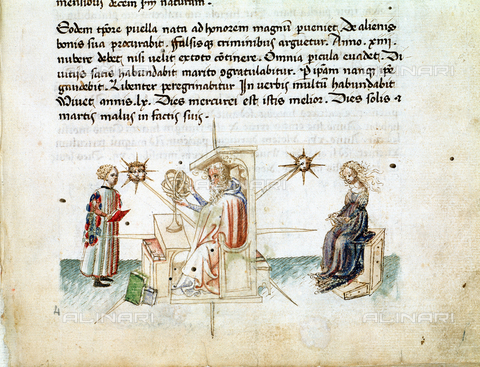 mensilioni decem p̄m naturam.
Eodem tp̄re puella nata ad honorem magnū pueniet. De alienis
bonis sua procurabit. Ifulsis q; criminibus arguetur. Anno. xiiii.
nubere debet nisi velit ex toto cōtinere. Omnia picula euadet. Di
uitijs satis habundabit marito ɔgratulabitur. P ip̄am nanq; p̄e
gaudebit. Libenter peregrinabitur. In verbis multū habundabit
Viuet annis. lx. Dies mercurei est istis melior. Dies solis ⁊
martis malus in factis suis.
4
ALINARI
ALINARI
ALINARI
ALINARI